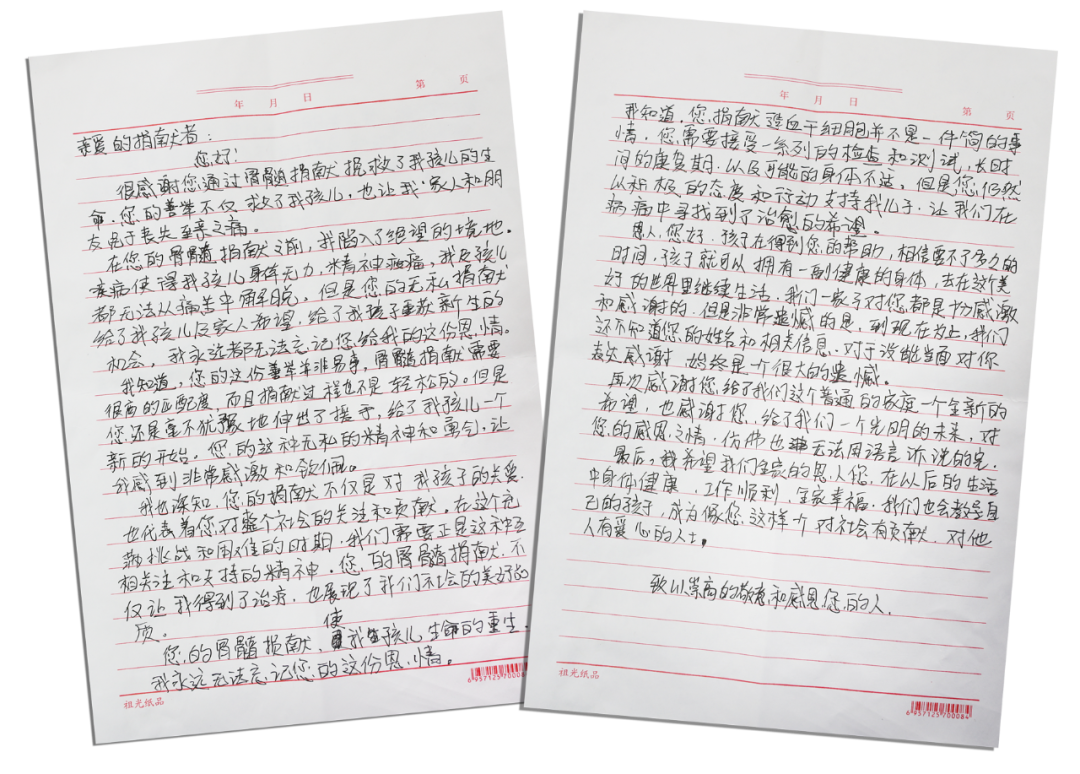 年 月 日
第 页
亲爱的捐献者：
您好！
很感谢您通过骨髓捐献挽救了我孩儿的生
命，您的善举不仅救了我孩儿，也让我家人和朋
友免于丧失至亲之痛。
在您的骨髓捐献之前，我陷入了绝望的境地。
疾病使得我孩儿身体无力，精神疲惫，我及孩儿
都无法从痛苦中解脱。但是您的无私捐献
给了我孩儿及家人希望，给了我孩子重获新生的
机会，我永远都无法忘记您给我的这份恩情。
我知道，您的这份善举并非易事，骨髓捐献需要
很高的匹配度，而且捐献过程也不是轻松的。但是
您还是毫不犹豫地伸出了援手，给了我孩儿一个
新的开始。您的这种无私的精神和勇气，让
我感到非常感激和钦佩。
我也深知，您的捐献不仅是对我孩子的关爱，
也代表着您对整个社会的关注和贡献。在这个充
满挑战和困难的时期，我们需要正是这种互
相关注和支持的精神。您的骨髓捐献，不
仅让我得到了治疗，也展现了我们社会的美好品
质。
您的骨髓捐献，使我孩儿生命的重生，
我永远无法忘记您的这份恩情。
祖光纸品
6957125700084
年 月 日
第 页
我知道，您捐献造血干细胞并不是一件简的事
情，您需要接受一系列的检查和测试，长时
间的康复期，以及可能的身体不适。但是您仍然
以积极的态度和行动支持我儿子，让我们在
病痛中寻找到了治愈的希望。
恩人，您好，孩子在得到您的帮助，相信要不了多久的
时间，孩子就可以拥有一副健康的身体，去在这个美
好的世界里继续生活，我们一家子对您都是十分感激
和感谢的，但是非常遗憾的是，到现在为止，我们
还不知道您的姓名和相关信息，对于没能当面对你
表达感谢，始终是一个很大的遗憾。
再次感谢您，给了我们这个普通的家庭一个全新的
希望，也感谢您，给了我们一个光明的未来，对
您的感恩之情，仿佛也无法用语言诉说的完。
最后，我希望我们全家的恩人您，在以后的生活
中身体健康，工作顺利，全家幸福，我们也会教导自
己的孩子，成为像您这样个对社会有贡献，对他
人有爱心的人士。
致以崇高的敬意和感恩您的人。
祖光纸品
6957125700084